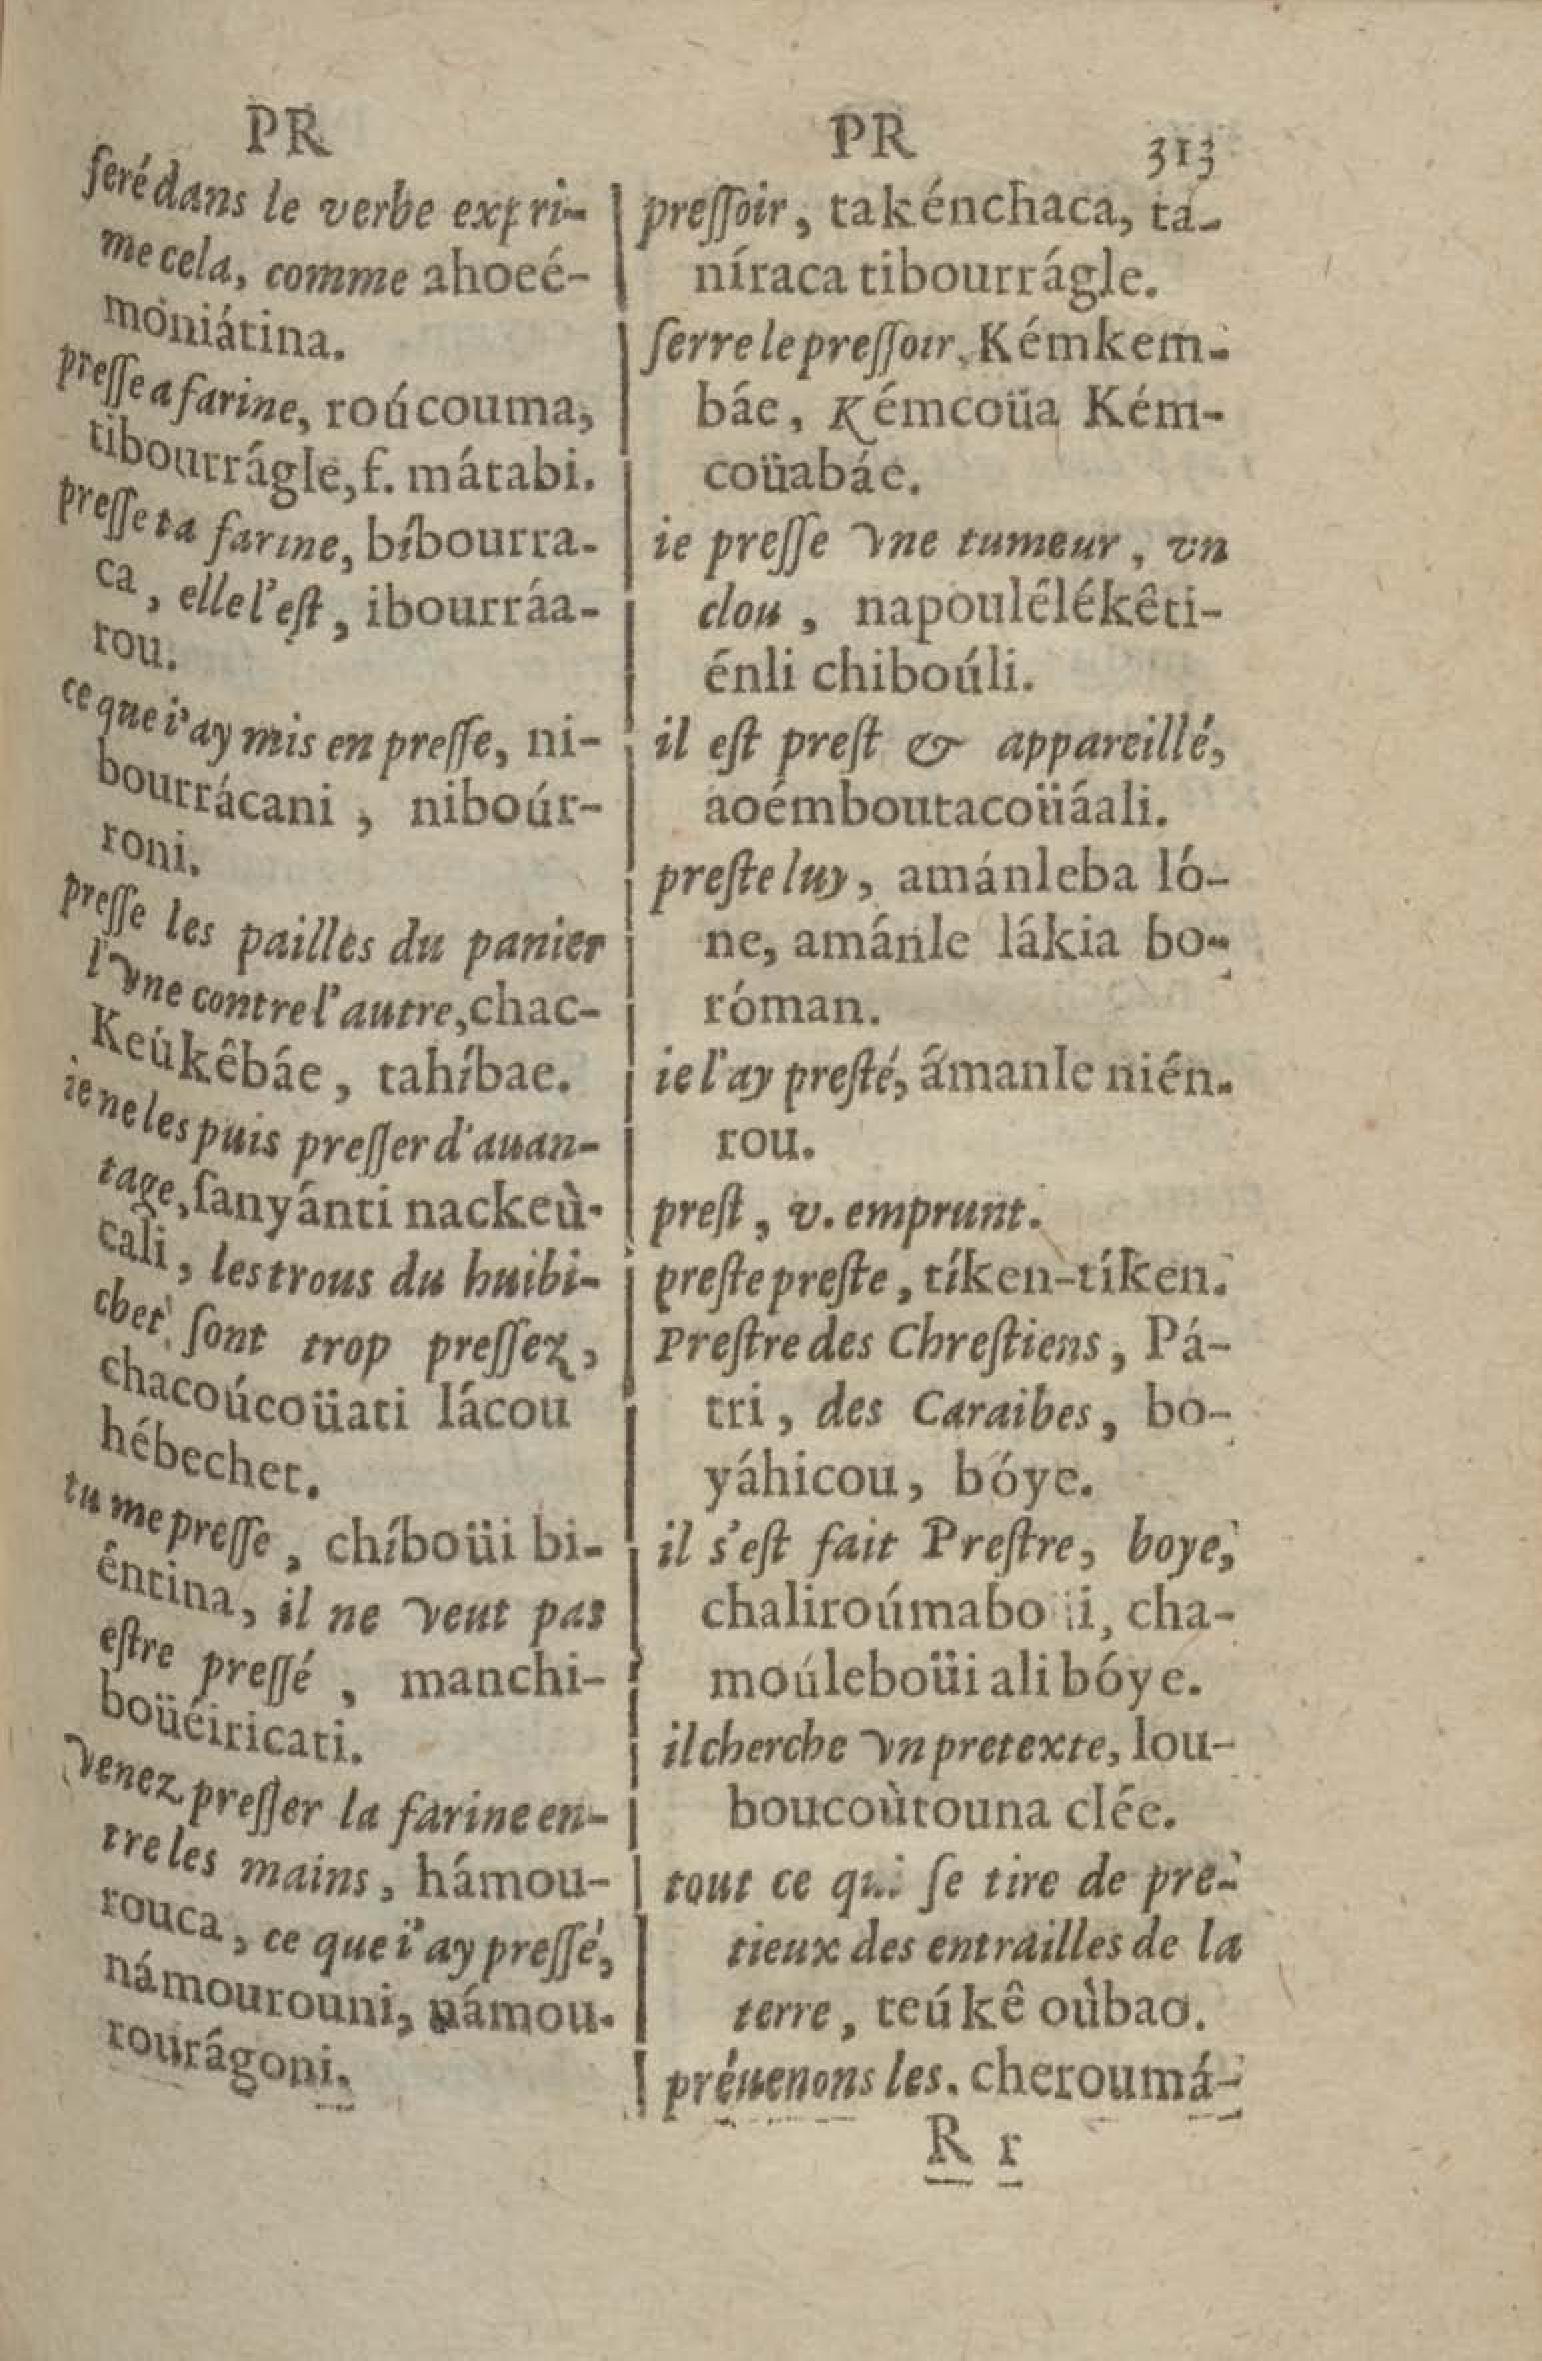 PR
ſeré dans le verbe expri-
me cela, comme ahoeé-
moniátina.
preſſe a farine, roúcouma,
tibourrágle, f. mátabi.
preſſe ta farine, bíbourra-
ca, elle l'eſt, ibourráa-
rou.
ce que i'ay mis en preſſe, ni-
bourrácani, niboúr-
roni.
preſſe les pailles du panier
l'vne contre l'autre, chac-
Keúkêbáe, tahíbae.
ie ne les puis preſſer d'auan-
tage, ſanyánti nackeù-
cali, les trous du huibi-
chet ſont trop preſſez,
chacoúcoüati lácou
hébechet.
tu me preſſe, chíboüi bi-
êntina, il ne veut pas
eſtre preſſé, manchi-
boüéiricati.
venez preſſer la farine en-
tre les mains, hámou-
rouca, ce que i'ay preſſé,
námourouni, námou-
rourágoni.
PR 313
preſſoir, takénchaca, tá-
níraca tibourrágle.
ſerre le preſſoir, Kémkem-
báe, Kémcoüa Kém-
coüabáe.
ie preſſe vne tumeur, vn
clou, napoulélékêti-
énli chiboúli.
il eſt preſt & appareillé,
aoémboutacoüáali.
preſte luy, amánleba ló-
ne, amánle lákia bo-
róman.
ie l'ay preſté, ámanle nién-
rou.
preſt, v. emprunt.
preſte preſte, tíken-tíken.
Preſtre des Chreſtiens, Pá-
tri, des Caraibes, bo-
yáhicou, bóye.
il s'eſt fait Preſtre, boye,
chaliroúmaboüi, cha-
moúleboüi ali bóye.
il cherche vn pretexte, lou-
boucoùtouna clée.
tout ce qui ſe tire de pre-
tieux des entrailles de la
terre, teúkê oùbao.
préuenons les. cheroumá-
R r